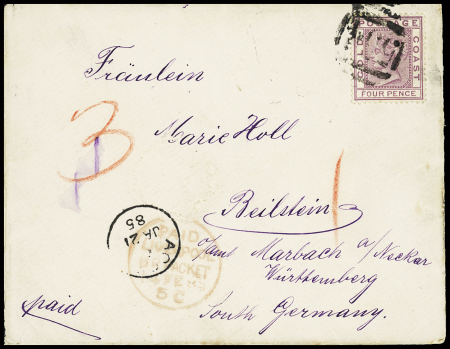 POSTAGE
GOLD COAST
FOUR PENCE
Fräulein
3
Marie Holl
1
Beilstein
o/amt Marbach a/Neckar
Württemberg
South Germany.
paid
JA 21
85
PAID
PACKET